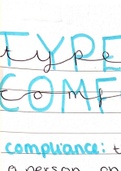 TYPE
type
COMF
comp
compliance: t
a person on